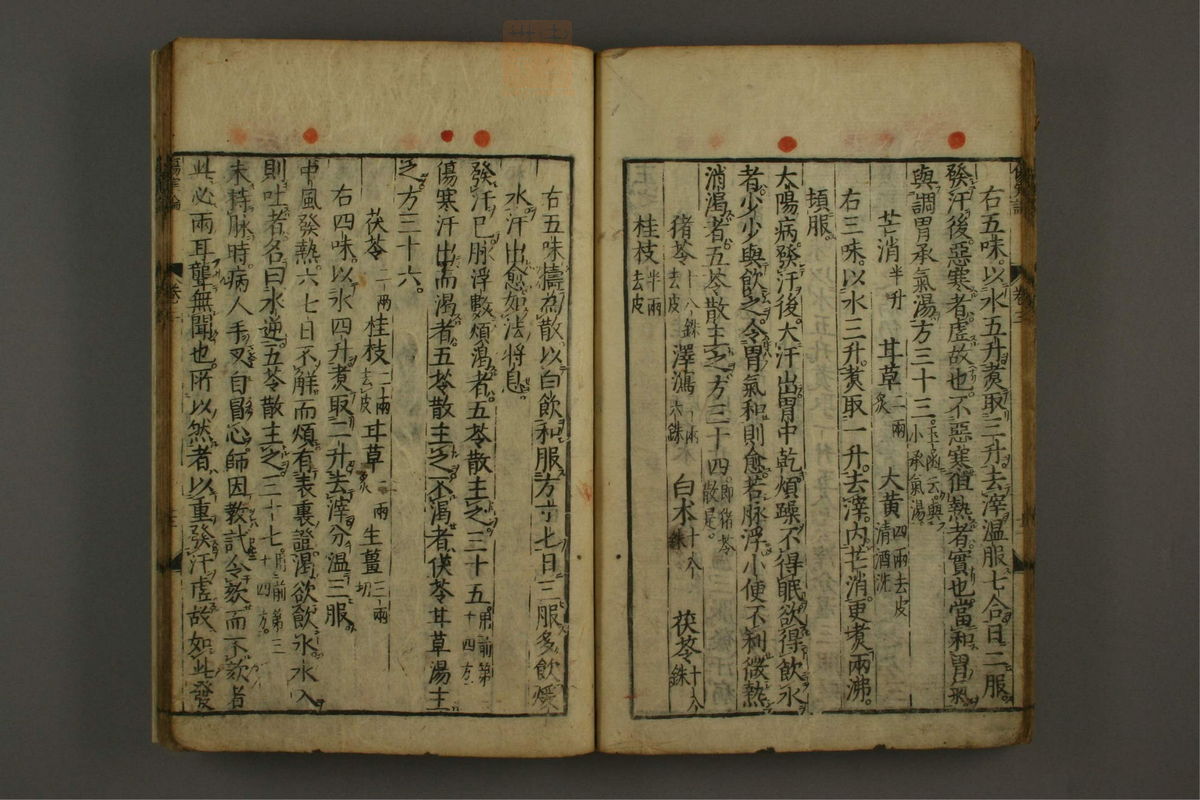 右五味。以水五升。煑取三升。去滓溫服七合。日三服
發汗後。惡寒者。虛故也。不惡寒。但熱者。實也。當和胃氣
與調胃承氣湯。方三十三。玉函云。與小承氣湯
芒消半升 甘草二兩炙 大黃四兩去皮清酒洗
右三味。以水三升。煑取一升。去滓。內芒消。更煑兩沸。
頓服。
太陽病。發汗後。大汗出。胃中乾。煩躁不得眠。欲得飲水
者。少少與飲之。令胃氣和則愈。若脉浮。小便不利。微熱
消渴者。五苓散主之。方三十四。即猪苓散是。
猪苓十八銖去皮 澤瀉一兩六銖 白朮十八銖 茯苓十八銖
桂枝半兩去皮
右五味。擣為散。以白飲和服方寸七。日三服。多飲煖
水。汗出愈。如法將息。
發汗已。脉浮數。煩渴者。五苓散主之。三十五。用前第三十四方
傷寒汗出而渴者。五苓散主之。不渴者。茯苓甘草湯主
之。方三十六。
茯苓二兩 桂枝二兩去皮 甘草一兩炙 生薑三兩切
右四味。以水四升。煑取二升。去滓。分溫三服
中風發熱。六七日不解而煩。有表裏證。渴欲飲水。水入
則吐者。名曰水逆。五苓散主之。三十七。用前第三十四方。
未持脉時。病人手叉自冒心。師因教試令欬。而不欬者
此必兩耳聾無聞也。所以然者。以重發汗虛故如此。發
傷寒論
卷三